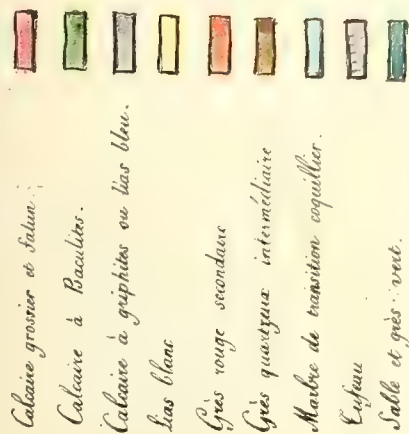 Calcaire grossier et Falun.
Calcaire à Baculites.
Calcaire à griphites ou lias bleu.
Lias blanc
Grès rouge secondaire
Grès quartzeux intermédiaire
Marbre de transition coquillier.
Tufeau
Sable et grès vert.